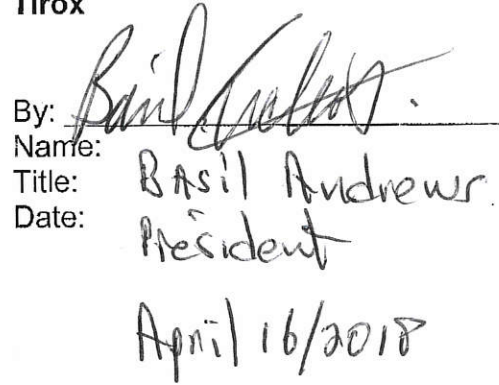 Tirox
By: Basil
Name: Basil Andrews
Title: President
Date: April 16/2018